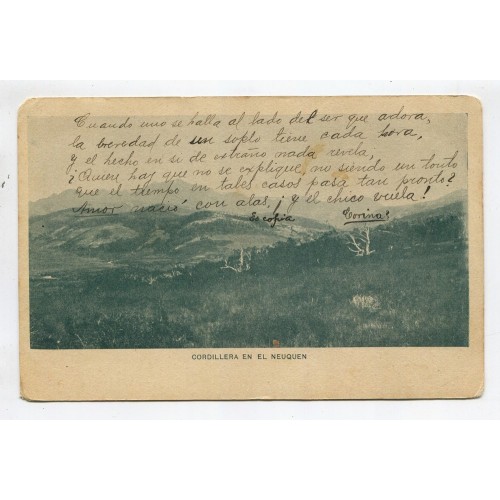 Cuando uno se halla al lado del ser que adora,
la beredad de un soplo tiene cada hora,
y el hecho en si de estraño nada revela,
¡Quien hay que no se explique, no siendo un tonto
que el tiempo en tales casos pasa tan pronto?
Amor nació con alas, ¡y el chico vuela!
Es copia Corina
CORDILLERA EN EL NEUQUEN